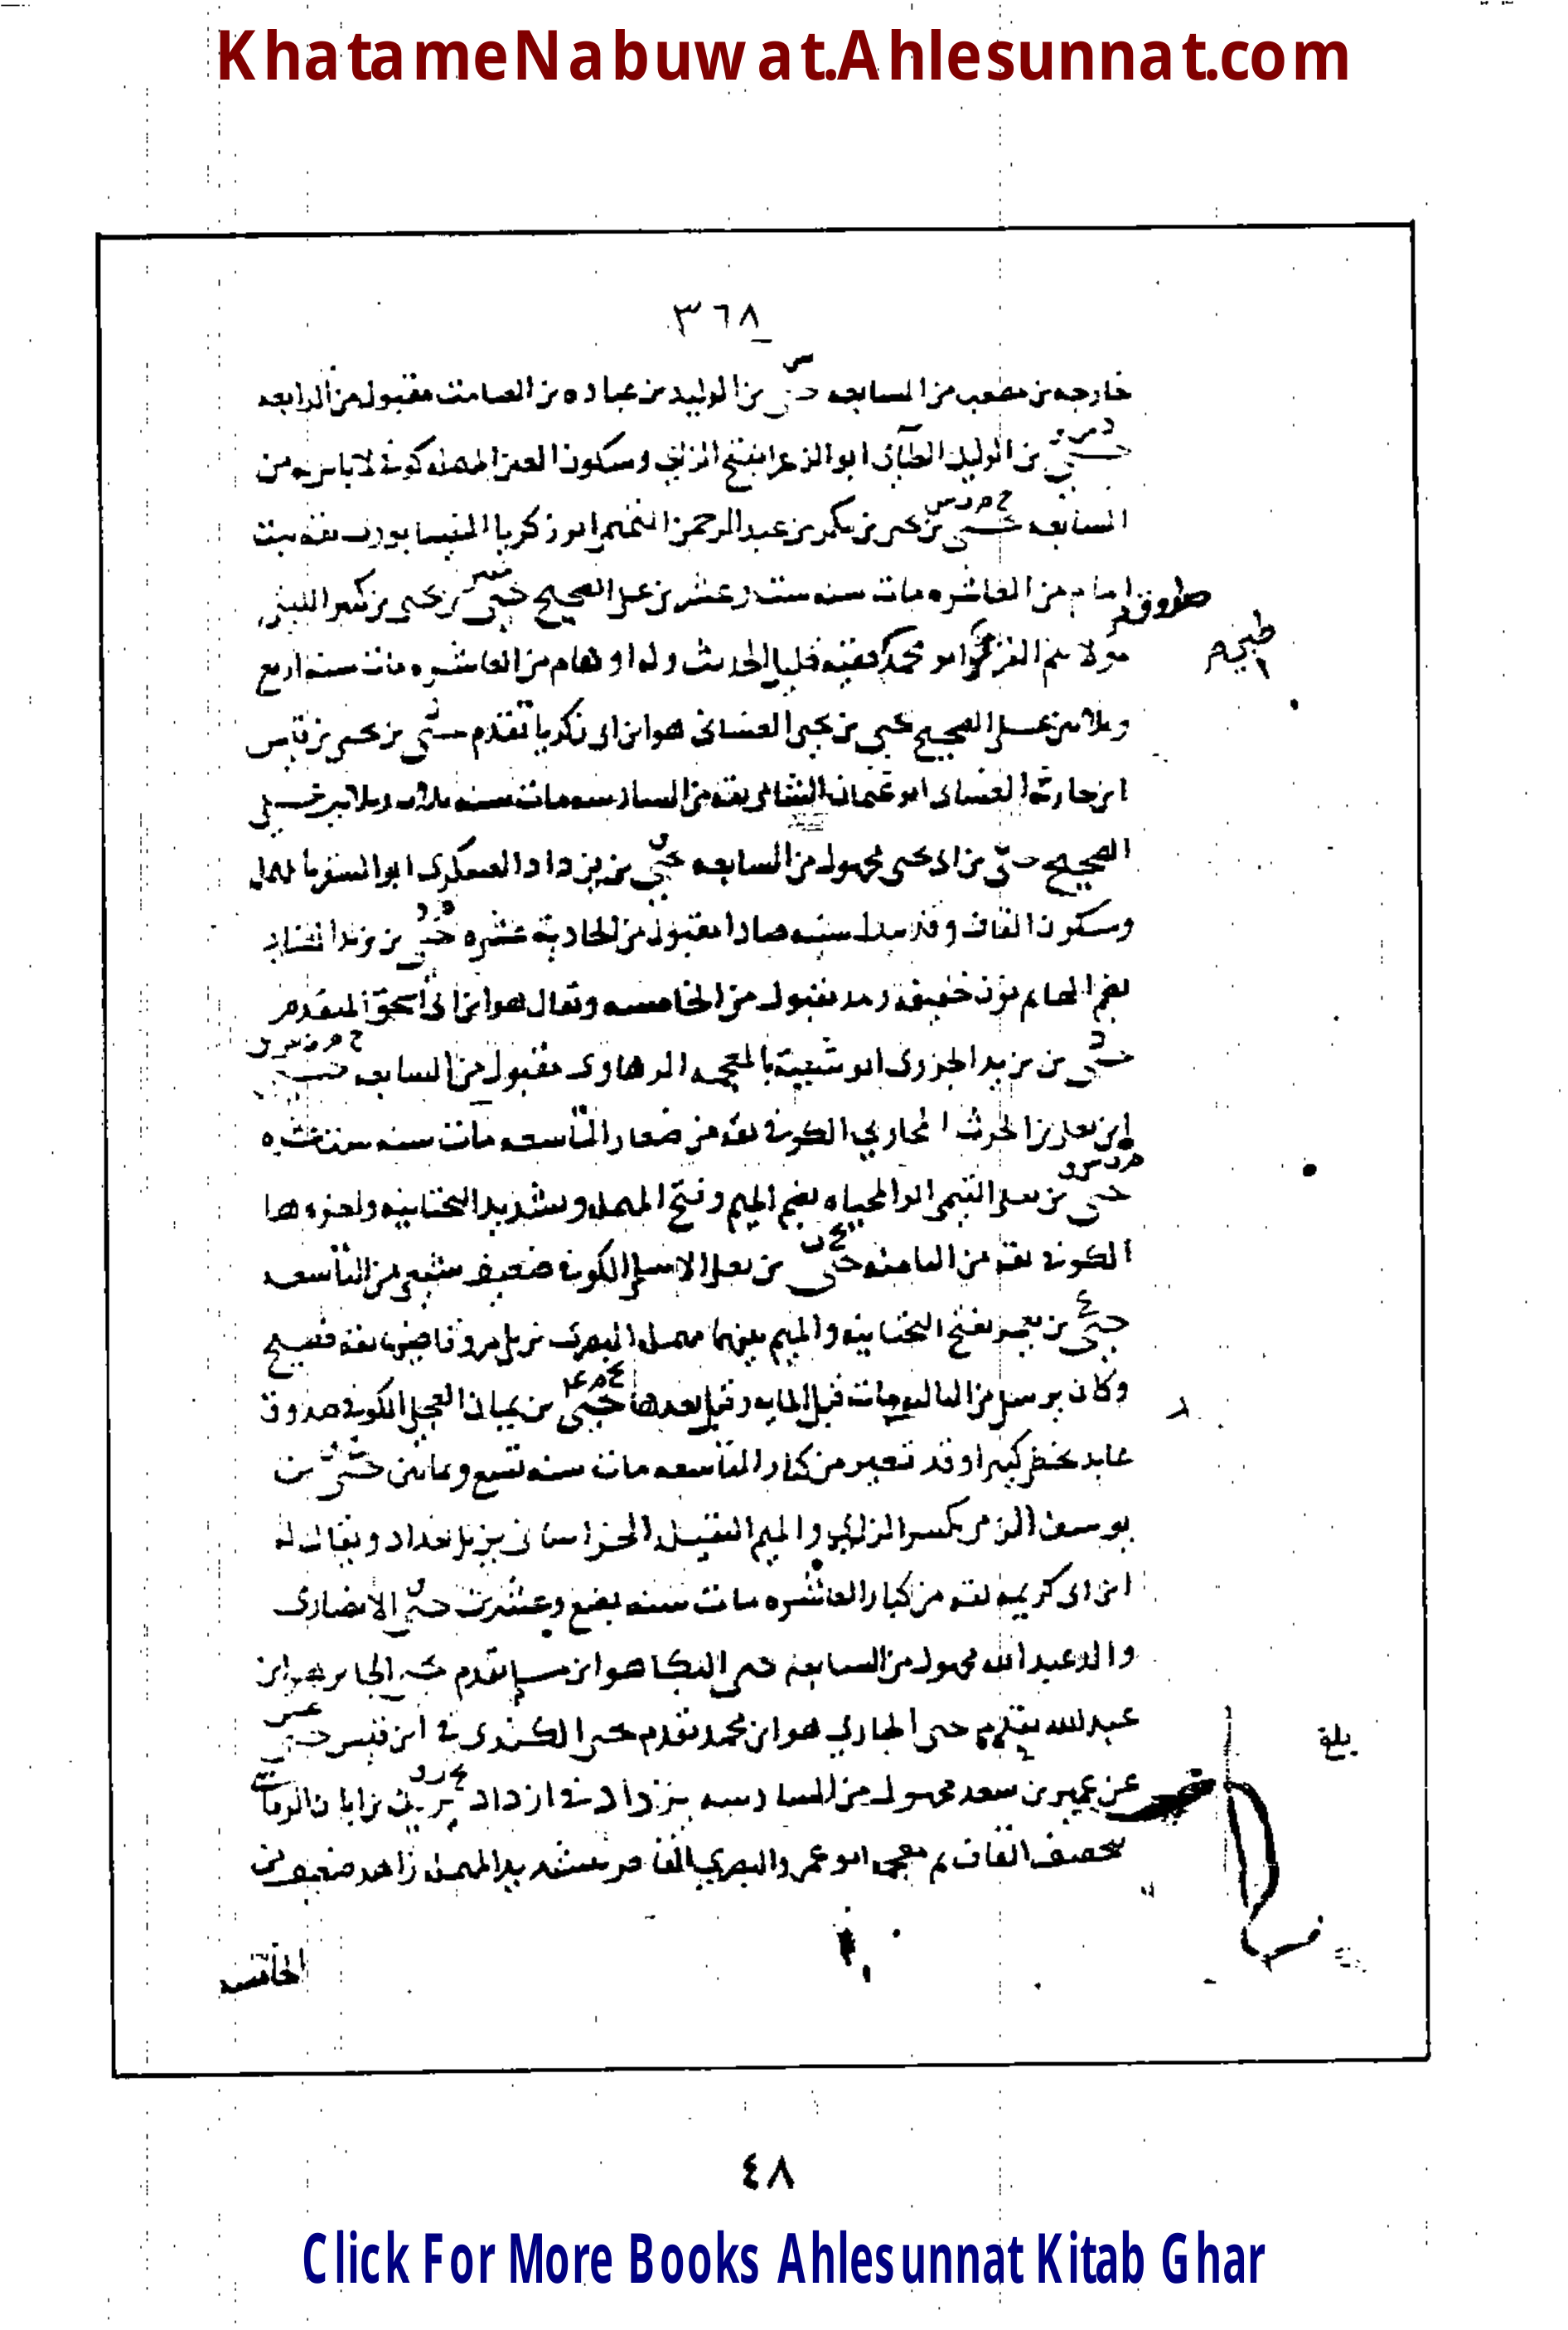 KhatameNabuwat.Ahlesunnat.com
٣٦٨
خارجه بن مصعب من السابعه س يحيى بن الوليد بن عباده بن الصامت مقبول من الرابعه
د س ق يحيى بن الوليد الطائي ابو الزعرا بفتح الزاي وسكون العين المهمله كوفي لا باس به من
السابعه خ م ت س يحيى بن يحيى بن بكر بن عبد الرحمن التميمي ابو زكريا النيسابوري ثقه ثبت
امام من العاشره مات سنه ست وعشرين على الصحيح يحيى بن يحيى بن كثير الليثي
مولاهم القرطبي ابو محمد فقيه قليل الحديث وله اوهام من العاشره مات سنه اربع
وثلاثين على الصحيح يحيى بن يحيى الغساني هو ابن ابي زكريا تقدم يحيى بن يحيى بن قيس
ابن حارثه الغساني ابو عثمان الشامي ثقه من السادسه مات سنه ثلاث وثلاثين على
الصحيح يحيى بن ابي يحيى مجهول من السابعه يحيى بن يزداد العسكري ابو السقر بالمهمله
وسكون القاف وقد تبدل سينه صادا مقبول من الحاديه عشره يحيى بن يزيد الهنائي
بضم الهاء ثم نون خفيفه ومد مقبول من الخامسه ويقال هو ابن ابي اسحق المتقدم
د يحيى بن يزيد الجزري ابو شيبة بالمعجمه الرهاوي مقبول من السابعه يحيى
ابن يعلى بن الحرث المحاربي الكوفي ثقه من صغار التاسعه مات سنه ست عشره
يحيى بن يعلى التيمي ابو المحياه بضم الميم وفتح المهمله وتشديد التحتانيه واخره ها
الكوفي ثقه من الثامنه يحيى بن يعلى الاسلمي الكوفي ضعيف شيعي من التاسعه
ع يحيى بن يعمر بفتح التحتانيه والميم بينهما مهمله البصري نزيل مرو وقاضيها ثقه فصيح
وكان يرسل من الثالثه مات قبل المايه وقيل بعدها يحيى بن يمان العجلي الكوفي صدوق
عابد يخطي كثيرا وقد تغير من كبار التاسعه مات سنه تسع وثمانين يحيى بن
يوسف الزمي بكسر الزاي والميم الثقيله الخراساني نزيل بغداد ويقال له
ابن ابي كريمه ثقه من كبار العاشره مات سنه بضع وعشرين يحيى الانصاري
والد عبد الله مجهول من السابعه يحيى البكا هو ابن مسلم تقدم يحيى الجابر هو ابن
عبد الله تقدم يحيى الجاري هو ابن محمد تقدم يحيى الكندي في ابن قيس يحيى
عن عمير بن سعد مجهول من السادسه يزداد في ازداد يزيد بن ابان الرقاشي
بتخفيف القاف ثم معجمه ابو عمرو البصري القاص بتشديد المهمله زاهد ضعيف من
الخامسه
بلغ
٤٨
Click For More Books Ahlesunnat Kitab Ghar